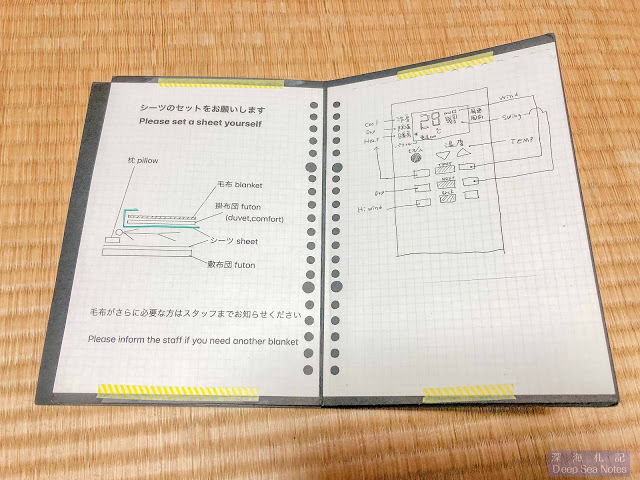 シーツのセットをお願いします
Please set a sheet yourself
枕 pillow
毛布 blanket
掛布団 futon
(duvet,comfort)
シーツ sheet
敷布団 futon
毛布がさらに必要な方はスタッフまでお知らせください
Please inform the staff if you need another blanket
Cool
Dry
Heat
28
℃
Wind
Swing
温度
TEMP
Hi wind
深海札記
Deep Sea Notes